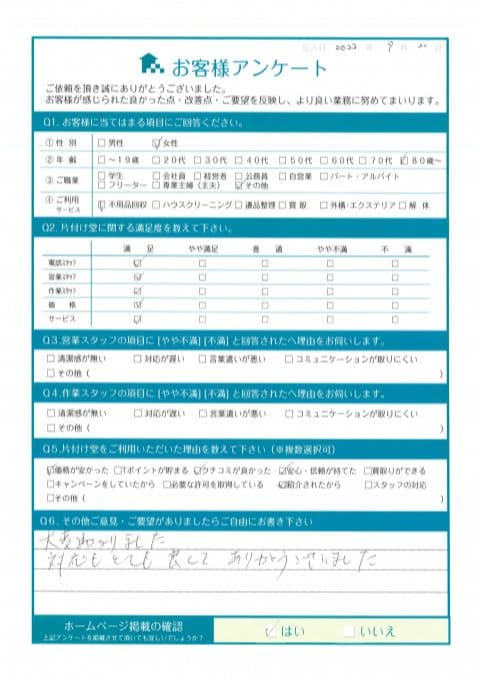 記入日 2022 年 9 月 20 日
お客様アンケート
ご依頼を頂き誠にありがとうございました。
お客様が感じられた良かった点・改善点・ご要望を反映し、より良い業務に努めてまいります。
Q1. お客様に当てはまる項目にご回答ください。
①性 別 □男性 ☑女性
②年 齢 □～19歳 □20代 □30代 □40代 □50代 □60代 □70代 ☑80歳～
③ご職業 □学生 □会社員 □経営者 □公務員 □自営業 □パート・アルバイト
□フリーター □専業主婦（主夫） ☑その他
④ご利用サービス ☑不用品回収 □ハウスクリーニング □遺品整理 □買取 □外構・エクステリア □解体
Q2. 片付け堂に関する満足度を教えて下さい。
満 足 やや満足 普 通 やや不満 不 満
電話スタッフ ☑ □ □ □ □
営業スタッフ ☑ □ □ □ □
作業スタッフ ☑ □ □ □ □
価 格 ☑ □ □ □ □
サービス ☑ □ □ □ □
Q3.営業スタッフの項目に [やや不満] [不満] と回答されたへ理由をお伺いします。
□清潔感が無い □対応が遅い □言葉遣いが悪い □コミュニケーションが取りにくい
□その他（ ）
Q4.作業スタッフの項目に [やや不満] [不満] と回答されたへ理由をお伺いします。
□清潔感が無い □対応が遅い □言葉遣いが悪い □コミュニケーションが取りにくい
□その他（ ）
Q5.片付け堂をご利用いただいた理由を教えて下さい（※複数選択可）
☑価格が安かった □Tポイントが貯まる ☑クチコミが良かった ☑安心・信頼が持てた □買取りができる
□キャンペーンをしていたから □必要な許可を取得している ☑紹介されたから □スタッフの対応
□その他（ ）
Q6. その他ご意見・ご要望がありましたらご自由にお書き下さい
大変助かりました
対応もとても良くて ありがとうございました
ホームページ掲載の確認
上記アンケートを掲載させて頂いても宜しいでしょうか？
☑はい □いいえ